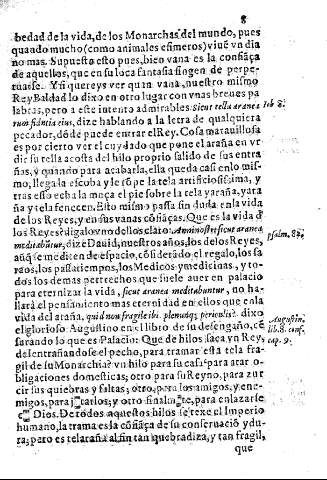 8
bedad de la vida, de los Monarchas del mundo, pues
quando mucho (como animales efimeros) viuē vn dia
no mas. Supuesto esto pues, bien vana es la confiāça
de aquellos, que en su loca fantasia fingen de perpe-
tuarse. Y si quereys ver quan vana, nuestro mismo
Rey Baldad lo dixo en otro lugar con vnas breues pa
labras, pero a este intento admirables. Sicut tella aranea
Iob 8.
rum fidūtia eius, dize hablando a la letra de qualquiera
pecador, dōde puede entrar el Rey. Cosa marauillosa
es por cierto ver el cuydado que pone el araña en vr-
dir su tella acosta del hilo proprio salido de sus entra
ñas, y quando para acabarla, ella queda casi en lo mis-
mo, llega la escoba y le rōpe la tela artificiosissima, y
tras esso echa la moça el pie sobre la tela y araña, y tra
ña y tela fenecen. Esto mismo passa sin duda en la vida
de los Reyes, y en sus vanas cōfiāças. Que es la vida d̄
los Reyes? digalo vno dellos claro: Anni nostri sicut aranea
psalm. 89.
meditabūtur, dize Dauid, nuestros años, los de los Reyes,
aunq̄ se mediten de espacio, cōsiderado el regalo, los sa
raos, los passatiempos, los Medicos y medicinas, y to-
dos los demas pertrechos que suele auer en palacio
para eternizar la vida, sicut aranea meditabuntur, no ha-
llará el pensamiento mas eternidad en ellos que en la
vida del araña, quid non fragile ibi, plenumq; periculis? dixo
Augustin.
el glorioso Augustino en el libro de su desengaño, cē
lib. 8. conf.
surando lo que es Palacio: Que de hilos saca vn Rey,
cap. 9.
desentrañandose el pecho, para tramar esta tela fra-
gil de su Monarchia? vn hilo para su casa para atar o-
bligaciones domesticas; otro para su Reyno, para zur
cir sus quiebras y faltas; otro para los amigos, y ene-
migos, para jūtarlos; y otro finalmēte, para enlazarse
cō Dios. De todos aquestos hilos se texe el Imperio
humano, la trama es la cōfiāça de su conseruaciō y du-
ra; pero es telaraña al fin tan quebradiza, y tan fragil,
que